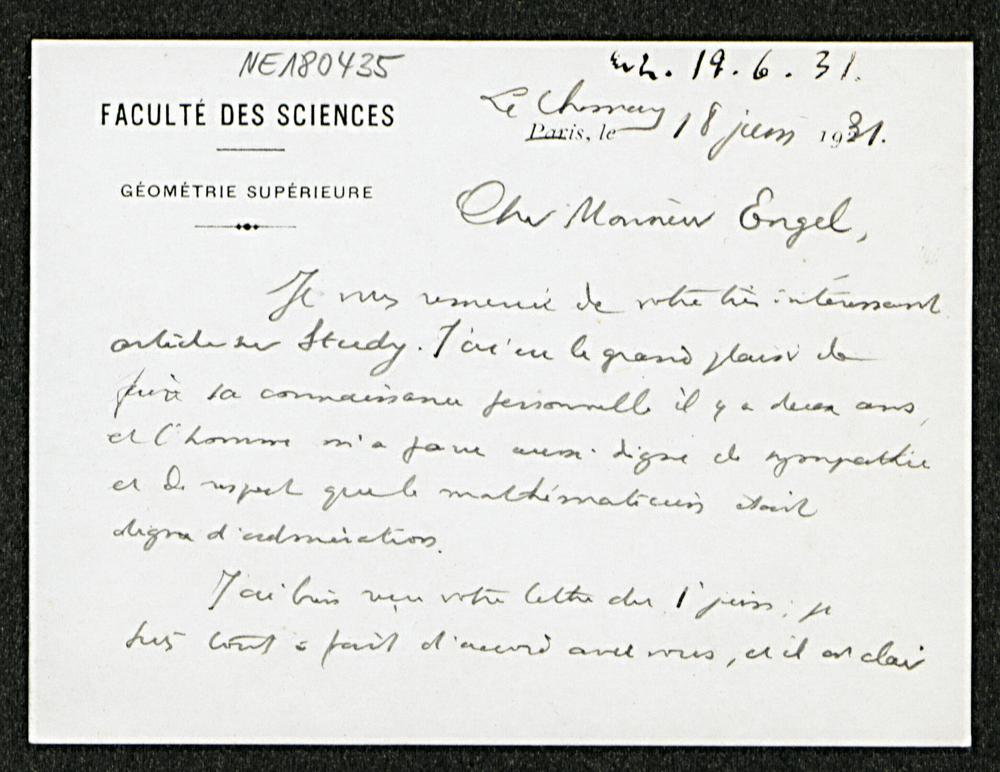 NE180435
erh. 19.6.31.
FACULTÉ DES SCIENCES
Le Chesnay
Paris, le 18 juin 1931.
GÉOMÉTRIE SUPÉRIEURE
Cher Monsieur Engel,
Je vous remercie de votre très intéressant
article sur Study. J'ai eu le grand plaisir de
faire sa connaissance personnelle il y a deux ans,
et l'homme m'a paru aussi digne de sympathie
et de respect que le mathématicien était
digne d'admiration.
J'ai bien reçu votre lettre du 1 juin; je
suis tout à fait d'accord avec vous, et il est clair